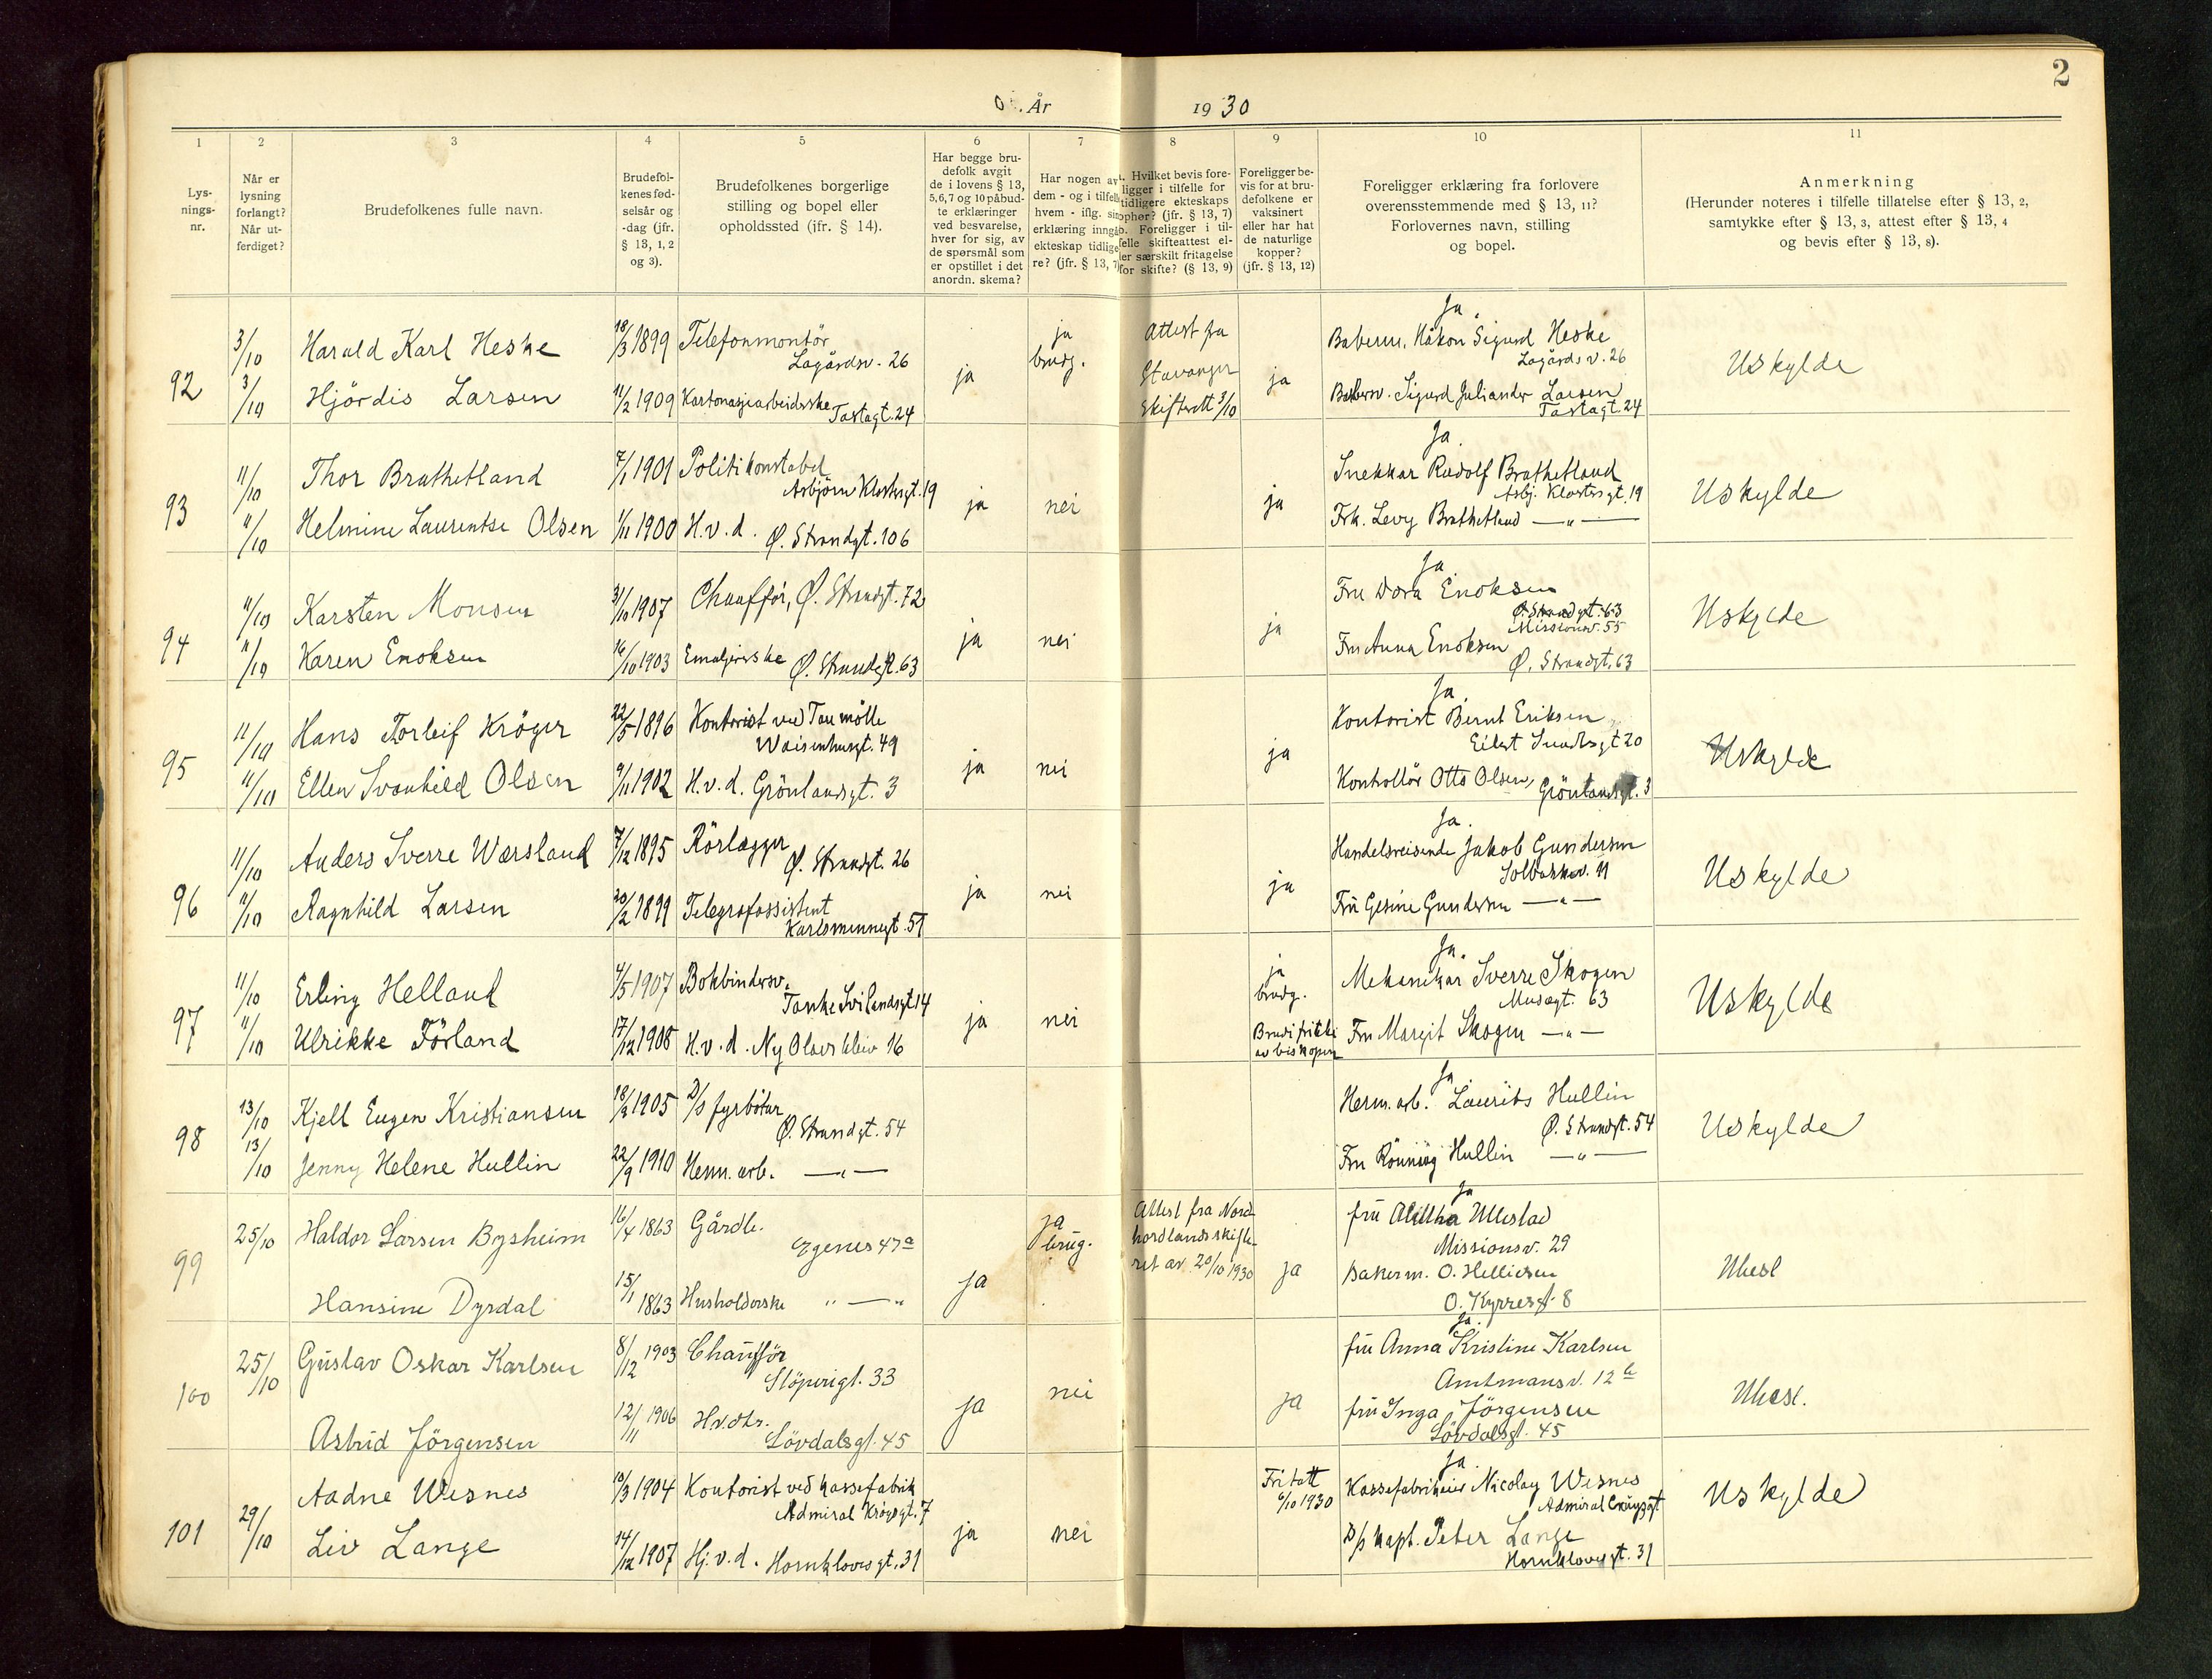 2
År 1930
1
2
3
4
5
6
7
8
9
10
11
Lys-
nings-
nr.
Når er
lysning
forlangt?
Når ut-
ferdiget?
Brudefolkenes fulle navn.
Brudefol-
kenes fød-
selsår og
-dag (jfr.
§ 13, 1, 2
og 3).
Brudefolkenes borgerlige
stilling og bopel eller
opholdssted (jfr. § 14).
Har begge bru-
defolk avgit
de i lovens § 13,
5,6,7 og 10 påbud-
te erklæringer
ved besvarelse,
hver for sig, av
de spørsmål som
er opstillet i det
anordn. skema?
Har nogen av
dem - og i tilfelle
hvem - iflg. sin
erklæring inngåt
ekteskap tidlige-
re? (jfr. § 13, 7)
Hvilket bevis fore-
ligger i tilfelle for
tidligere ekteskaps
ophør? (jfr. § 13, 7)
b. Foreligger i til-
felle skifteattest el-
ler særskilt fritagelse
for skifte? (§ 13, 9)
Foreligger be-
vis for at bru-
defolkene er
vaksinert
eller har hat
de naturlige
kopper?
(jfr. § 13, 12)
Foreligger erklæring fra forlovere
overensstemmende med § 13, 11?
Forlovernes navn, stilling
og bopel.
Anmerkning
(Herunder noteres i tilfelle tillatelse efter § 13, 2,
samtykke efter § 13, 3, attest efter § 13, 4
og bevis efter § 13, 8).
92
3/10
Harald Karl Heske
18/3 1899
Telefonmontör
Lagårdsv. 26
3/10
Hjördis Larsen
11/2 1909
Kartonasjearbeiderske
Tastagt. 24
ja
ja
brudg.
Attest fra
Stavanger
Skifterett 3/10
ja
Ja.
Håkon Sigurd Heske
Lagårdsv. 26
Sigurd Juliander Larsen
Tastagt. 24
Uskylde
93
11/10
Thor Brathetland
7/1 1901
Politikonstabel
Asbjörn Klostersgt. 19
11/10
Helmine Laurentse Olsen
1/11 1900
H.v.d. Ø. Strandgt. 106
ja
nei
ja
Ja.
Snekker Rudolf Brathetland
Asbj. Klostersgt. 19
Frk. Levy Brathetland —"—
Uskylde
94
11/10
Karsten Monsen
31/10 1907
Chaufför, Ø. Strandgt. 72
11/10
Karen Enoksen
16/10 1903
Emaljererske Ø. Strandgt. 63
ja
nei
ja
Ja.
Fru Dora Enoksen
Ø. Strandgt. 63
Missionsv. 55
Fru Anna Enoksen
Ø. Strandgt. 63
Uskylde
95
11/10
Hans Torleif Kröger
22/5 1896
Kontorist ved Tou mölle
Waisenhusgt. 49
11/10
Ellen Svanhild Olsen
9/11 1902
H.v.d. Grönlandsgt. 3
ja
nei
ja
Ja.
Kontorist Bernt Eriksen
Eilert Sundtsgt 20
Kontrollör Otto Olsen, Grönlandsgt. 3
Uskylde
96
11/10
Anders Sverre Wærsland
7/12 1895
Rörlægger
Ø. Strandgt. 26
11/10
Ragnhild Larsen
20/2 1899
Telegrafassistent
Karlsminnegt. 57
ja
nei
ja
Ja.
Handelsreisende Jakob Gundersen
11
Fru Gesine Gundersen —"—
Uskylde
97
11/10
Erling Helland
4/5 1907
Bokbindersv.
Tanke Svilandsgt 14
11/10
Ulrikke Förland
17/12 1908
H.v.d. Ny Olavs kleiv 16
ja
nei
ja
brudg.
av biskopen
Ja.
Mekaniker Sverre Skogen
Musegt. 63
Fru Margit Skogen —"—
Uskylde
98
13/10
Kjell Eugen Kristiansen
18/3 1905
D/s fyrböter
Ø. Strandgt. 54
13/10
Jenny Helene Hullin
22/9 1910
Herm. arb. —"—
Ja
Herm. arb. Laurits Hullin
Ø. Strandgt. 54
Fru Rönnög Hullin —"—
Uskylde
99
25/10
Haldor Larsen Bysheim
16/4 1863
Gårdbr.
Egenes 47a
Hansine Dyrdal
15/1 1863
Husholderske "—"
ja
ja
brug.
Attest fra Nord-
hordlands skifte-
ret av 20/10 1930
ja
Ja
fru Alettha Ullestad
Missionsv. 29
Bakerm. O. Helliesen
O. Kyrresgt. 8
100
25/10
Gustav Oskar Karlsen
8/12 1903
Chaufför
Stöperigt. 33
Astrid Jörgensen
12/11 1906
Hv.dtr.
Lövdalsgt. 45
ja
nei
ja
Ja.
fru Anna Kristine Karlsen
Amtmansv. 12b
fru Inga Jörgensen
Lövdalsgt. 45
101
29/10
Aadne Wesnes
10/3 1904
Kontorist ved kassefabrik
Admiral Kröysgt. 7
Liv Lange
14/12 1907
Hj.v.d. Hornklovesgt. 31
ja
nei
Fritatt
6/10 1930
Ja.
Kassefabrikeier Nicolay Wesnes
Admiral Cruysgt
D/s kapt. Peter Lange
Hornklovesgt. 31
Uskylde